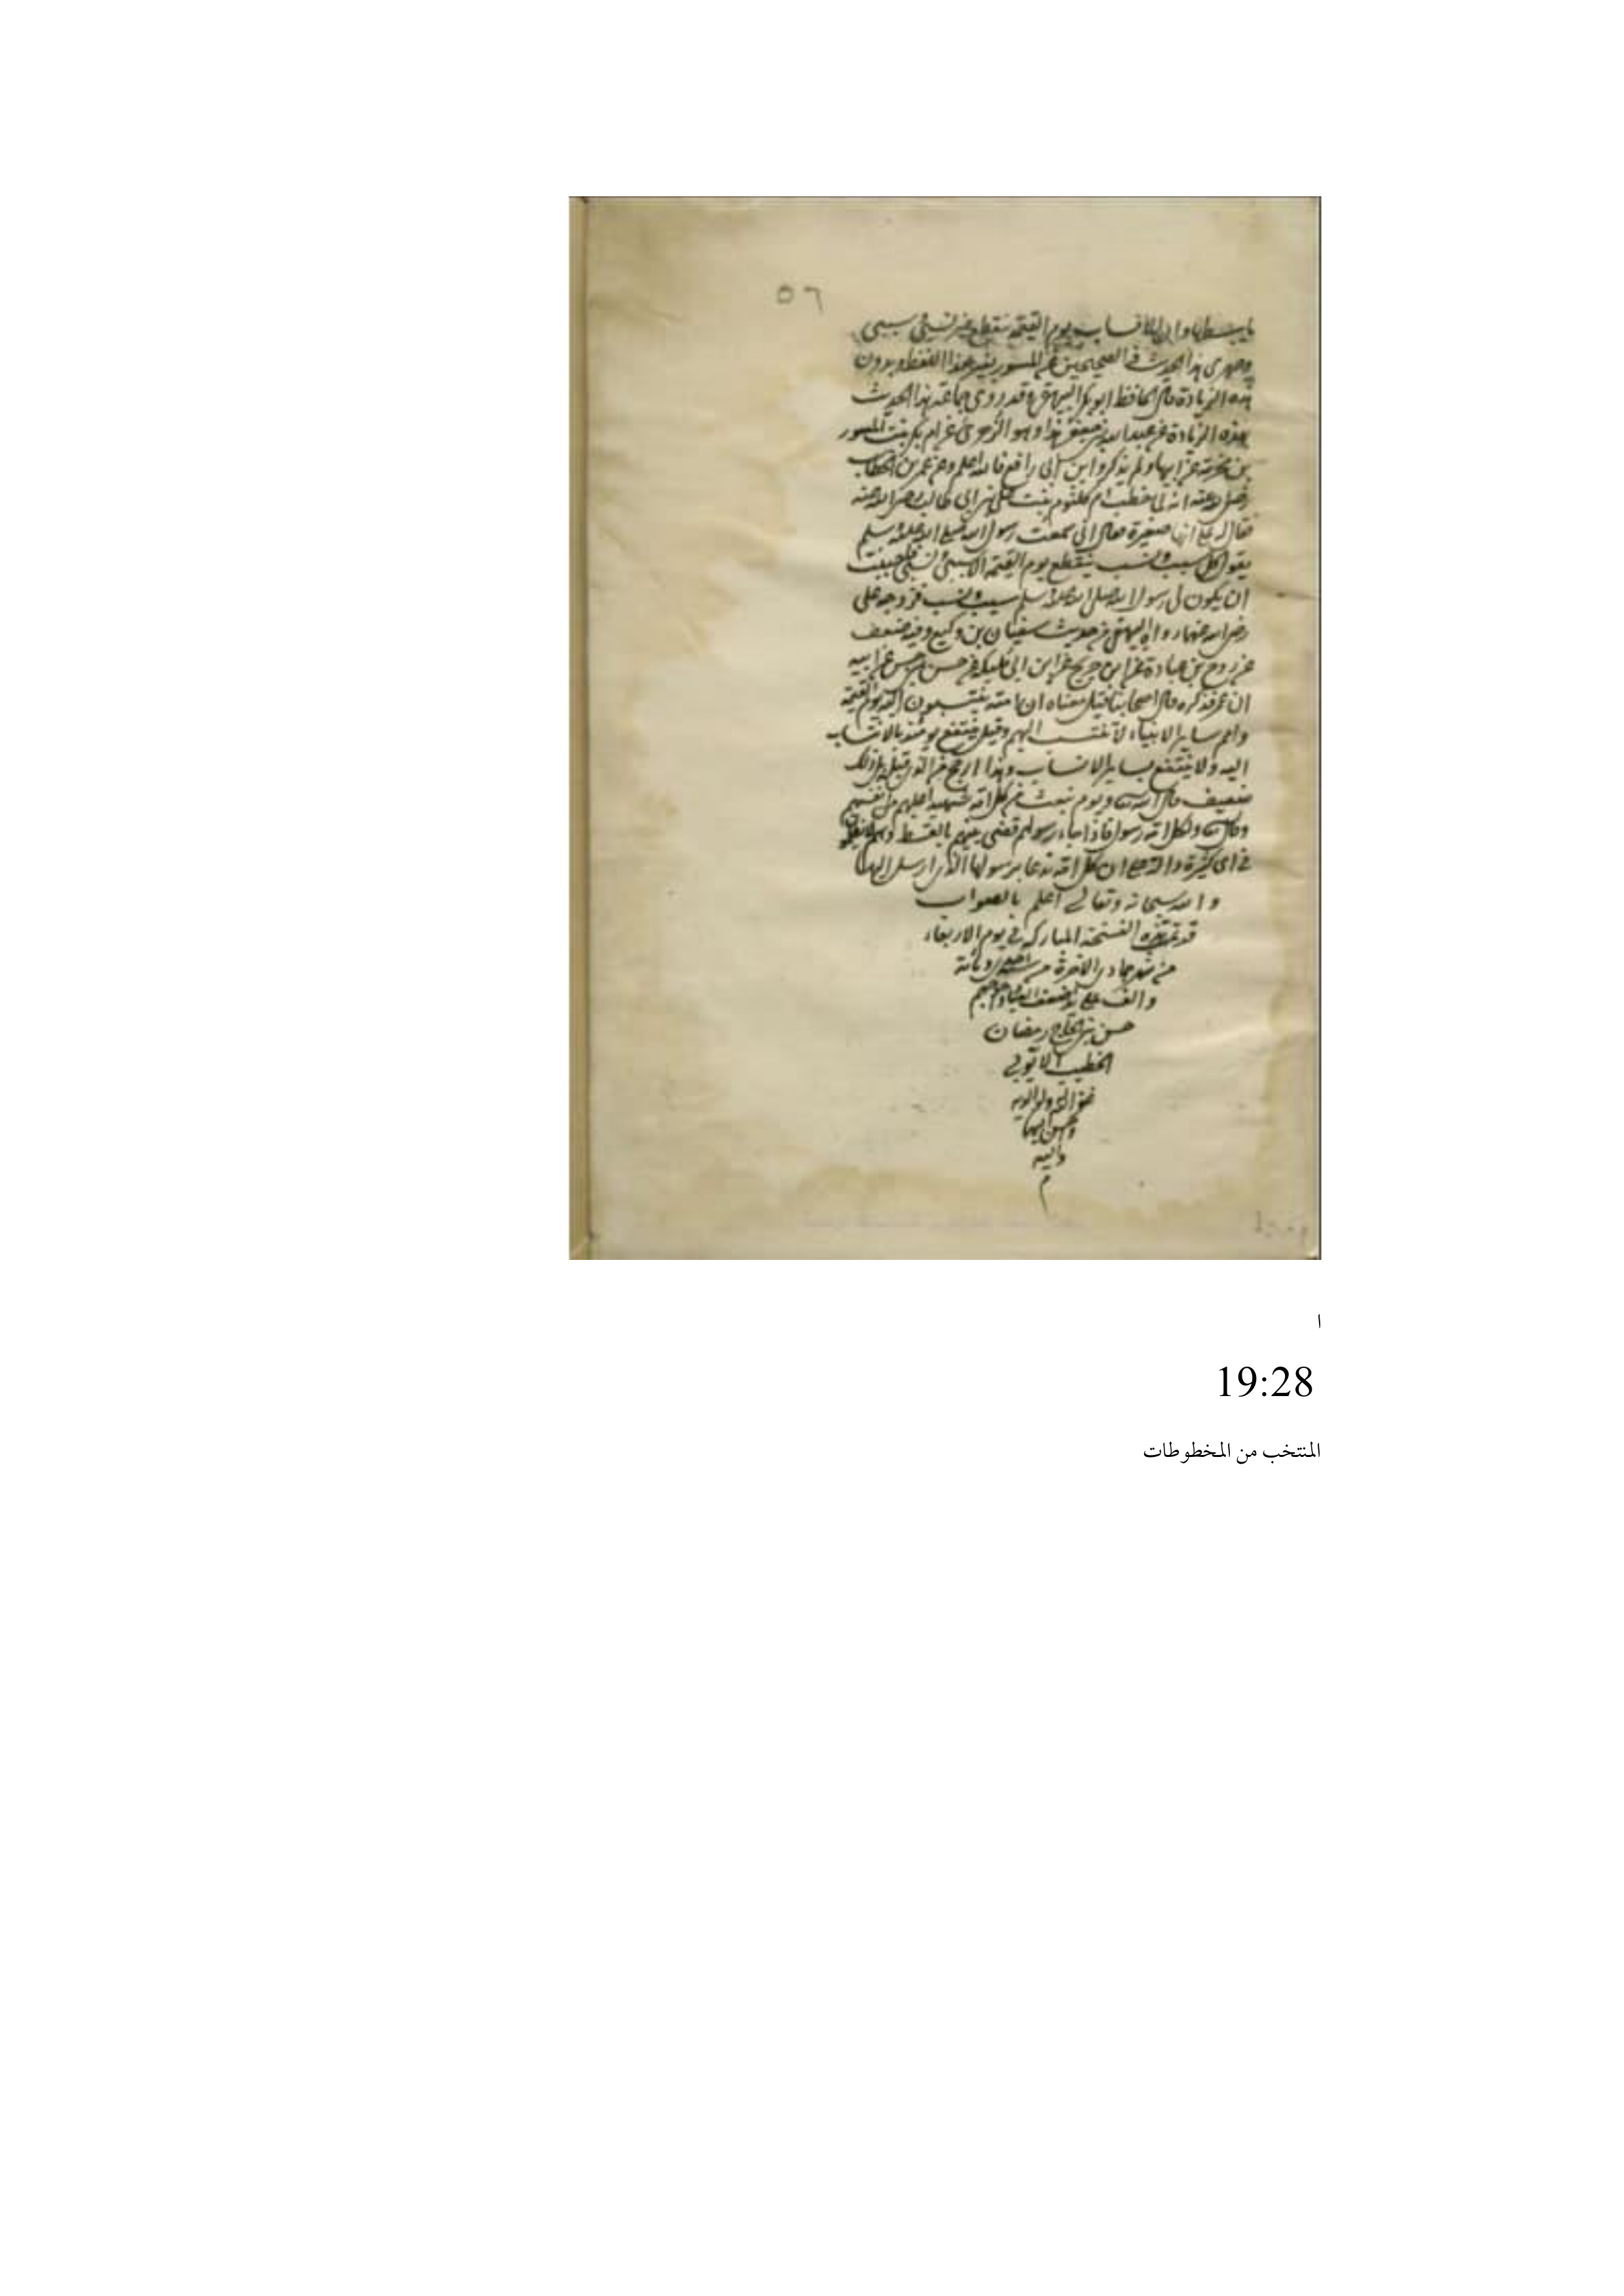 ٥٦
ما يبسطها وان الانساب يوم القيمة تنقطع غير نسبي وسببي
وصهري هذا الحديث في الصحيحين عن المسور بغير هذا اللفظ وبدون
هذه الزيادة قال الحافظ ابو بكر البيهقي وقد روى جماعة هذا الحديث
بهذه الزيادة عن عبدالله بن جعفر هذا وهو الزهري عن ام بكر بنت المسور
بن مخرمة عن ابيها ولم يذكروا ابن ابي رافع فالله اعلم وعن عمر بن الخطاب
رضي الله عنه انه لما خطب ام كلثوم بنت علي بن ابي طالب رضي الله عنه
فقال له علي انها صغيرة فقال اني سمعت رسول الله صلى الله عليه وسلم
يقول كل سبب ونسب ينقطع يوم القيمة الا سببي ونسبي فاحببت
ان يكون لي من رسول الله صلى الله عليه وسلم سبب ونسب فزوجه علي
رضي الله عنهما رواه البيهقي من حديث سفيان بن وكيع وفيه ضعف
عن روح بن عبادة عن ابن جريج عن ابن ابي مليكة عن حسن بن حسن عن ابيه
ان عمر فذكره قال اصحابنا قيل معناه ان امته ينتسبون اليه يوم القيمة
وامم ساير الانبياء لا تنتسب اليهم وقيل ينتفع يومئذ بالانتساب
اليه ولا ينتفع بساير الانساب وهذا ارجح من الذي قبله بل ذلك
ضعيف قال الله تع ويوم نبعث في كل امة شهيدا عليهم من انفسهم
وقال تع ولكل امة رسول فاذا جاء رسولهم قضي بينهم بالقسط وهم لا يظلمون
في اي كثيرة دالة على ان كل امة تدعا برسولها الذي ارسل اليها
والله سبحانه وتعالى اعلم بالصواب
قد تمت هذه النسخة المباركة في يوم الاربعاء
من شهر جمادى الاخرة من سنة ومائة
والف على يد اضعف العباد
حسن بن الحاج رمضان
الخطيب الايوبي
غفر الله له ولوالديه
واحسن اليهما
واليه
م
ا
19:28
المنتخب من المخطوطات